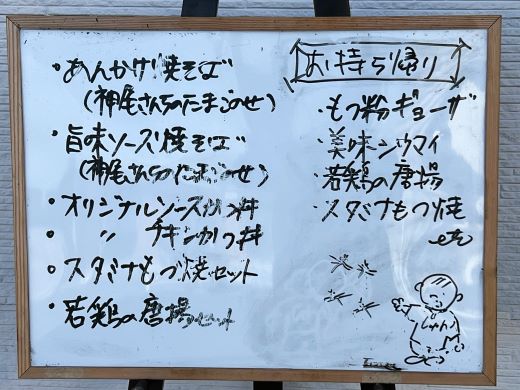 ・あんかけ焼そば
(神尾さんちのたまごのせ)
・旨味ソース焼そば
(神尾さんちのたまごのせ)
・オリジナルソースかつ丼
・ 〃 チキンかつ丼
・スタミナもつ焼セット
・若鶏の唐揚セット
お持ち帰り
・もつ粉ギョーザ
・美味シウマイ
・若鶏の唐揚
・スタミナもつ焼
etc